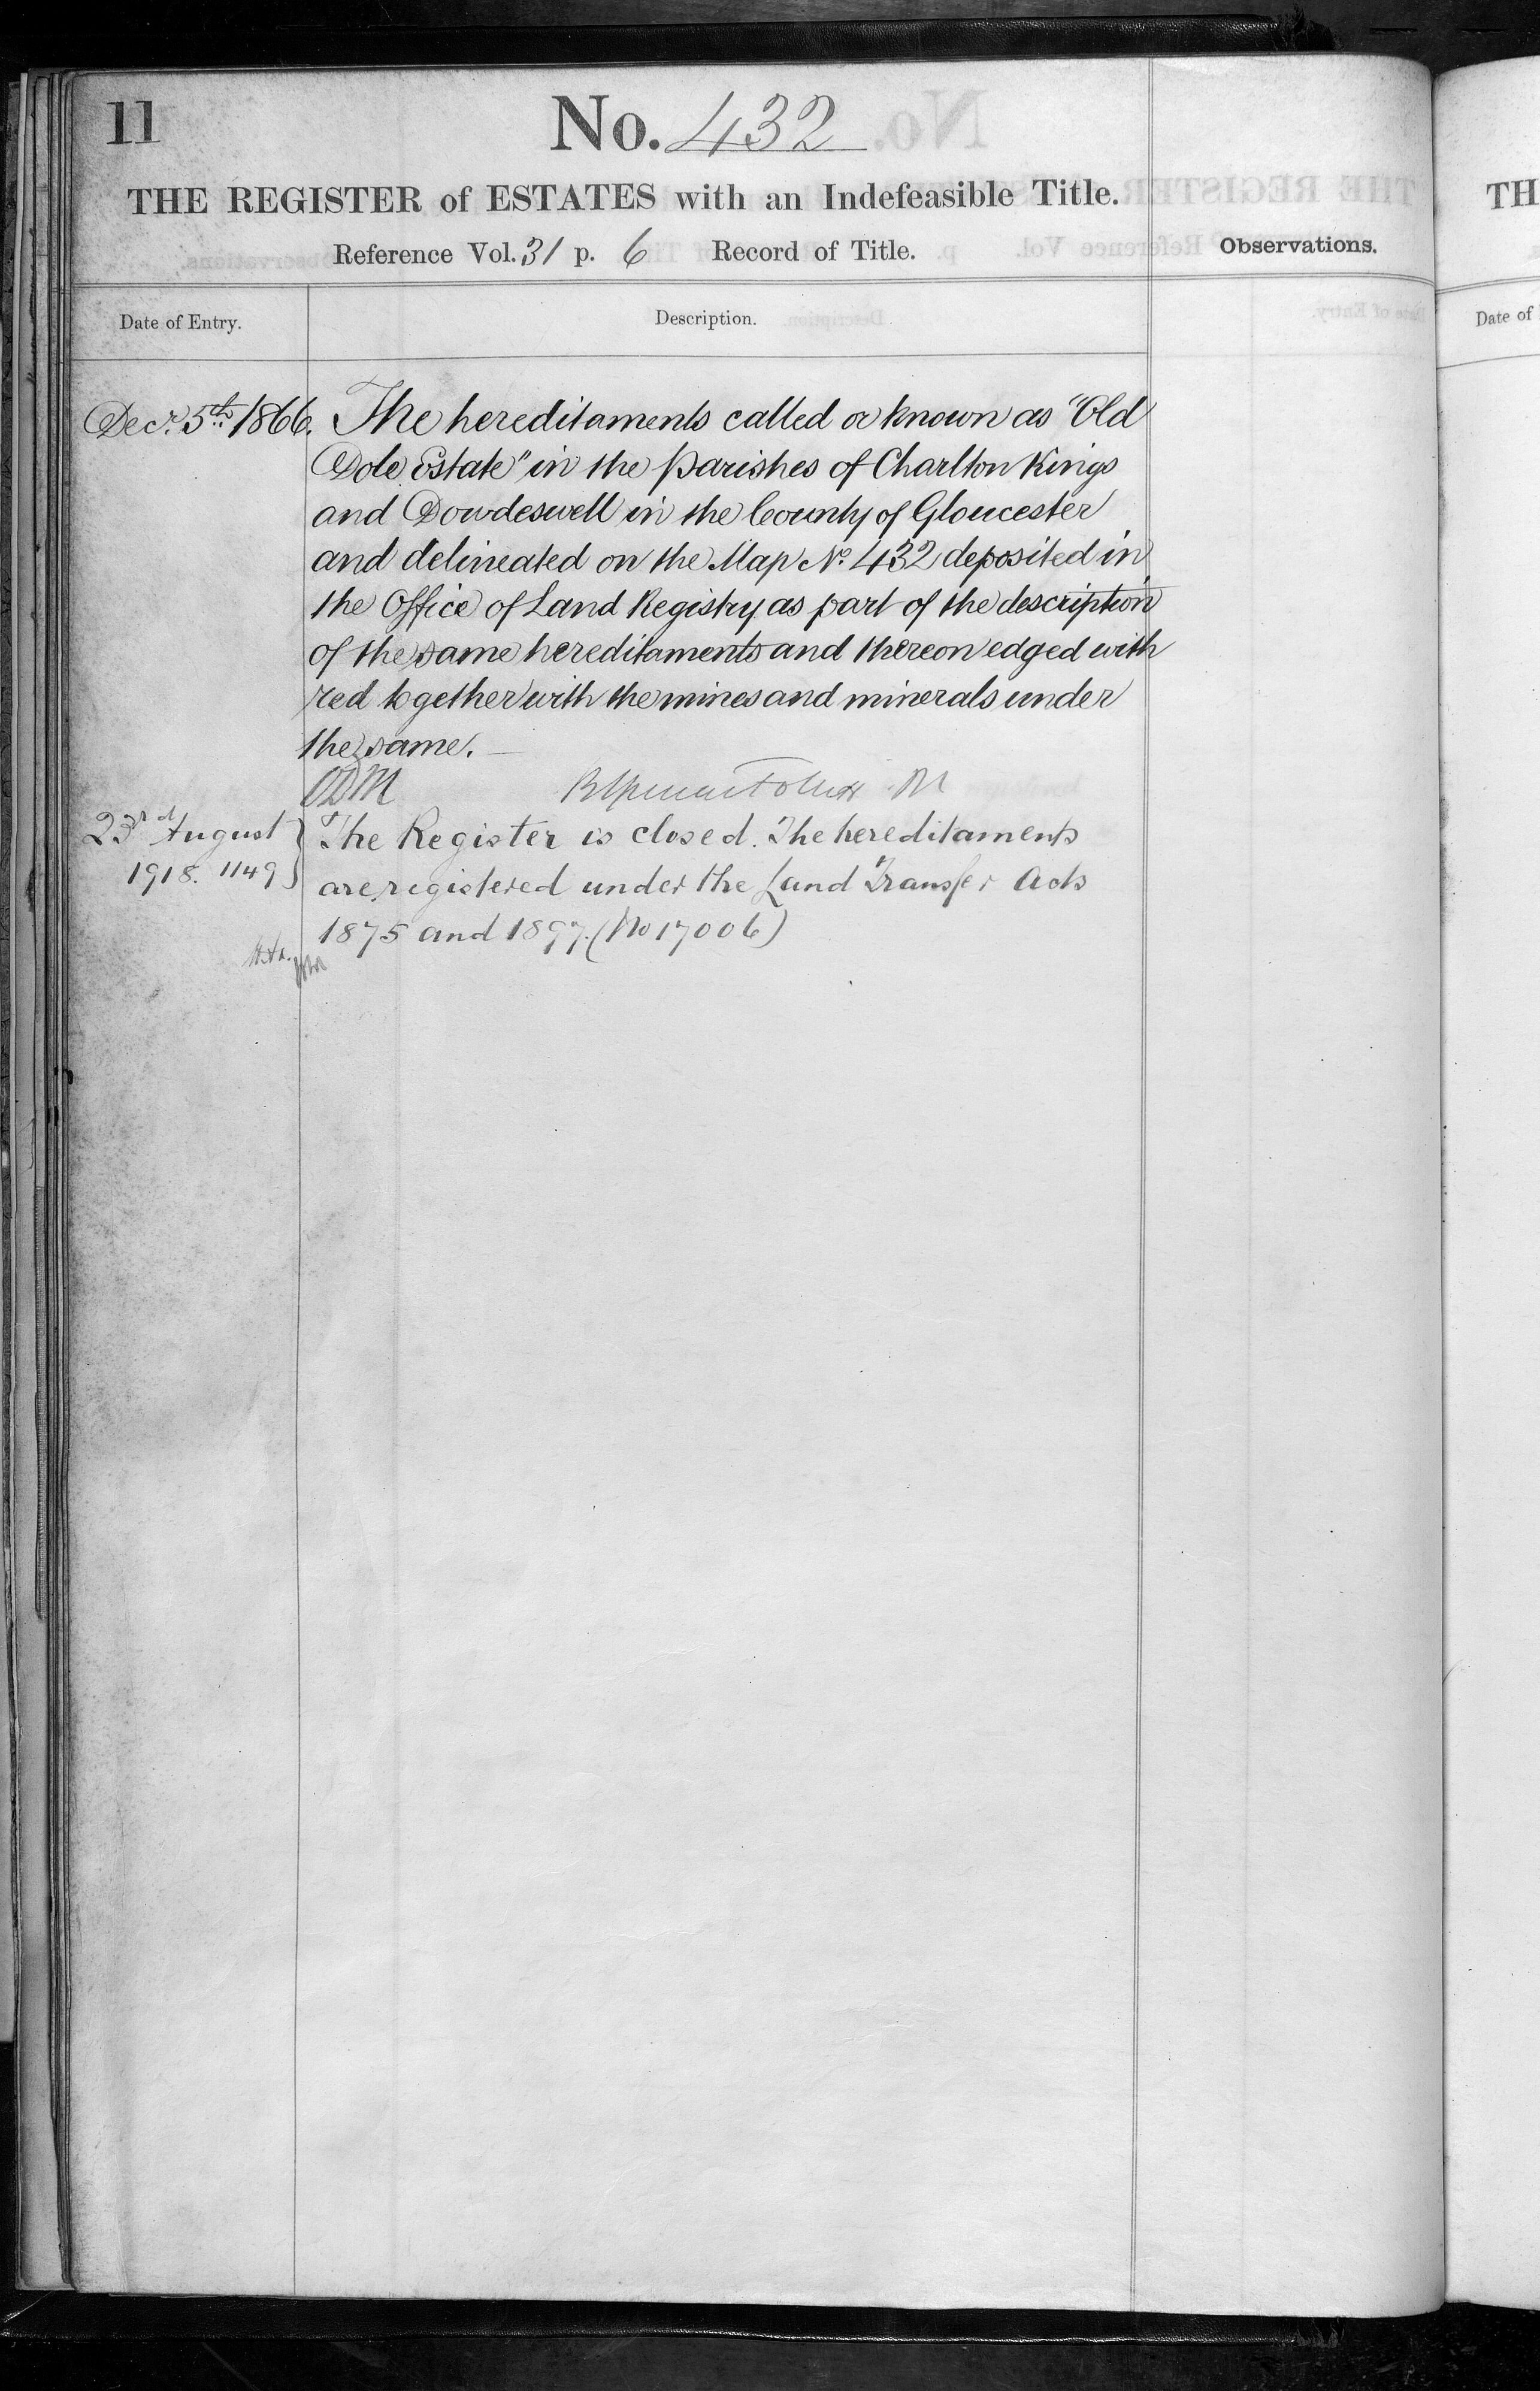 11
No. 432
THE REGISTER of ESTATES with an Indefeasible Title.
Reference Vol. 31 p. 6 Record of Title.
Observations.
Date of Entry.
Description.
Decr. 5th 1866. The hereditaments called or known as "Old
Dole Estate" in the parishes of Charlton Kings
and Dowdeswell in the County of Gloucester
and delineated on the Map No. 432 deposited in
the Office of Land Registry as part of the description
of the same hereditaments and thereon edged with
red together with the mines and minerals under
the same.
ODM
23rd August The Register is closed. The hereditaments
1918. 1149 are registered under the Land Transfer Acts
1875 and 1897. (No 17006)
TH
Date of